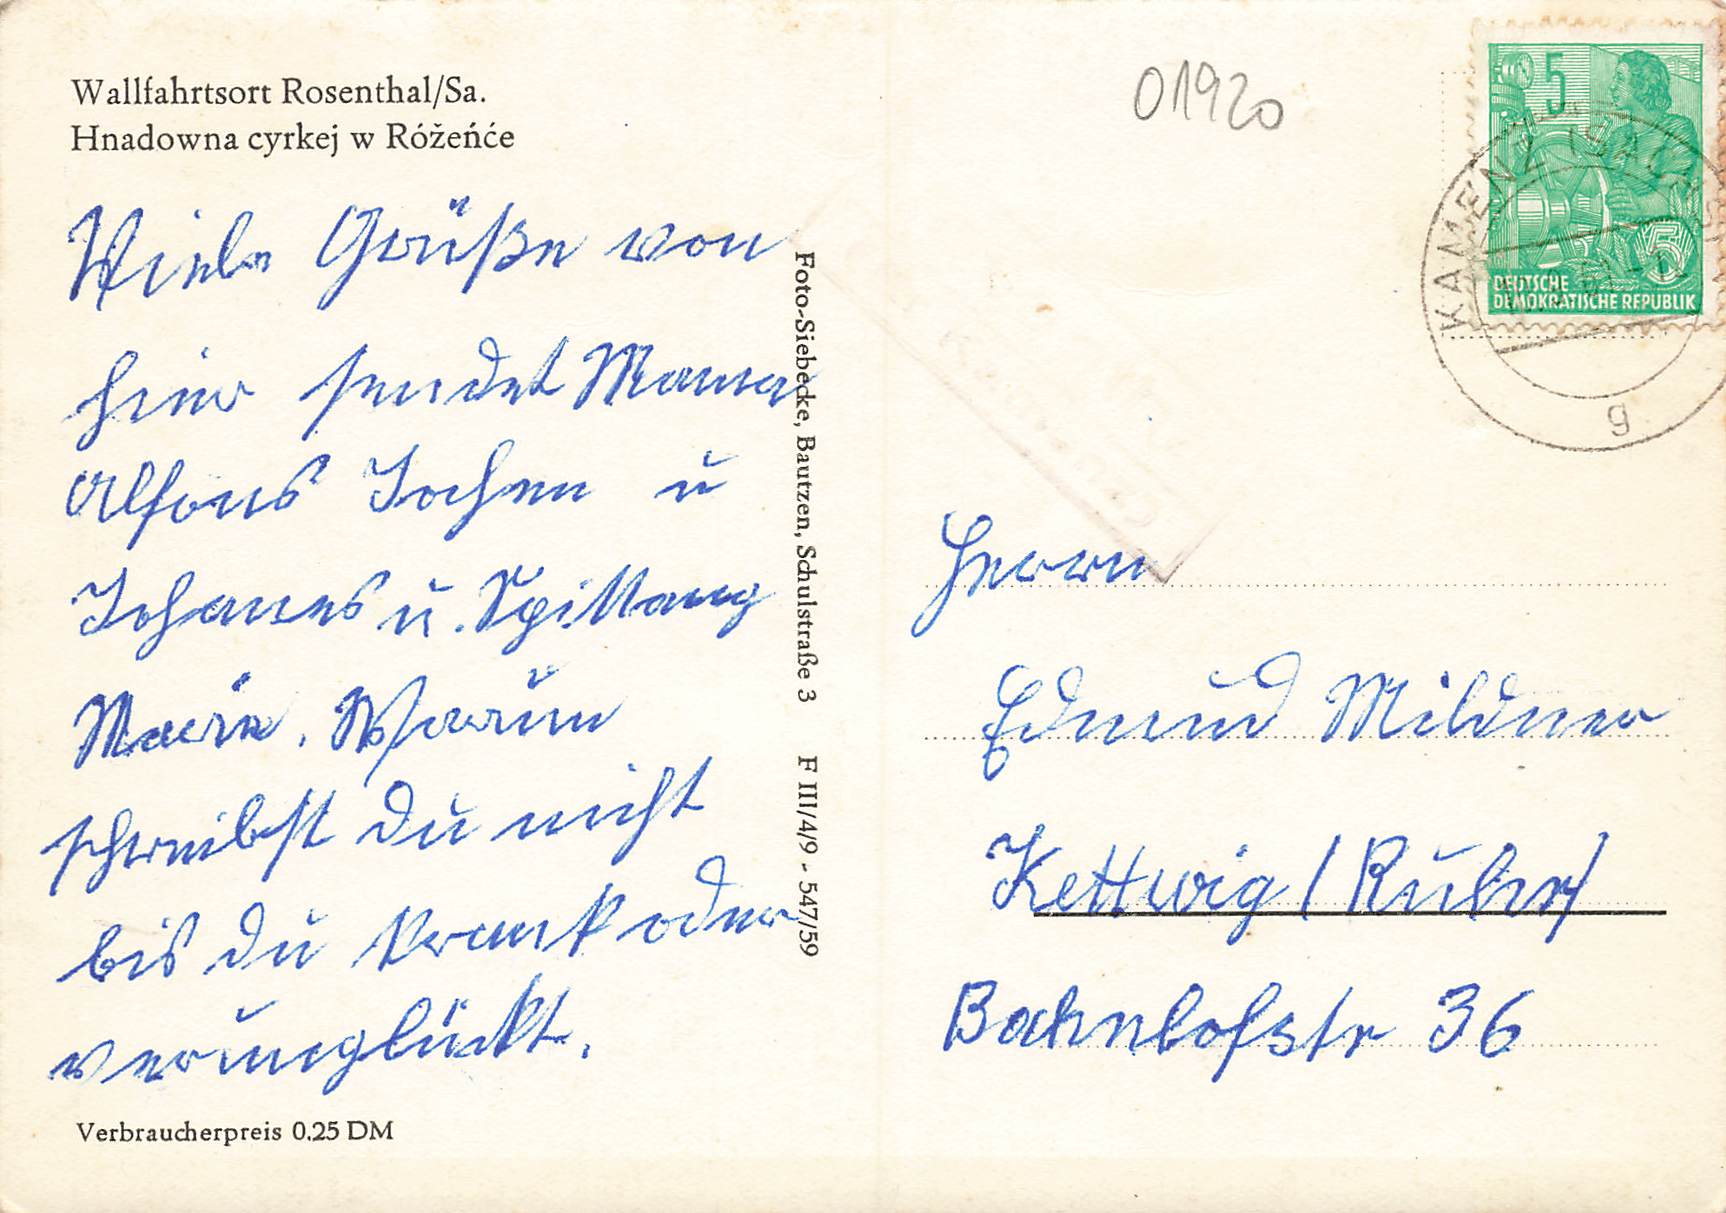 Wallfahrtsort Rosenthal/Sa.
Hnadowna cyrkej w Róžeńće
Viele Grüße von
hier sendet Mama
Alfons Jochen u
Johanes u.
Marie. Warum
schreibst du nicht
bis du krank oder
verunglückt.
Verbraucherpreis 0.25 DM
Foto-Siebecke, Bautzen, Schulstraße 3 F III/4/9 - 547/59
01920
5
DEUTSCHE
DEMOKRATISCHE REPUBLIK
5
KAMENZ (SACHS)
g
Herrn
Edmund Mildner
Kettwig / Ruhr /
Bahnhofstr 36